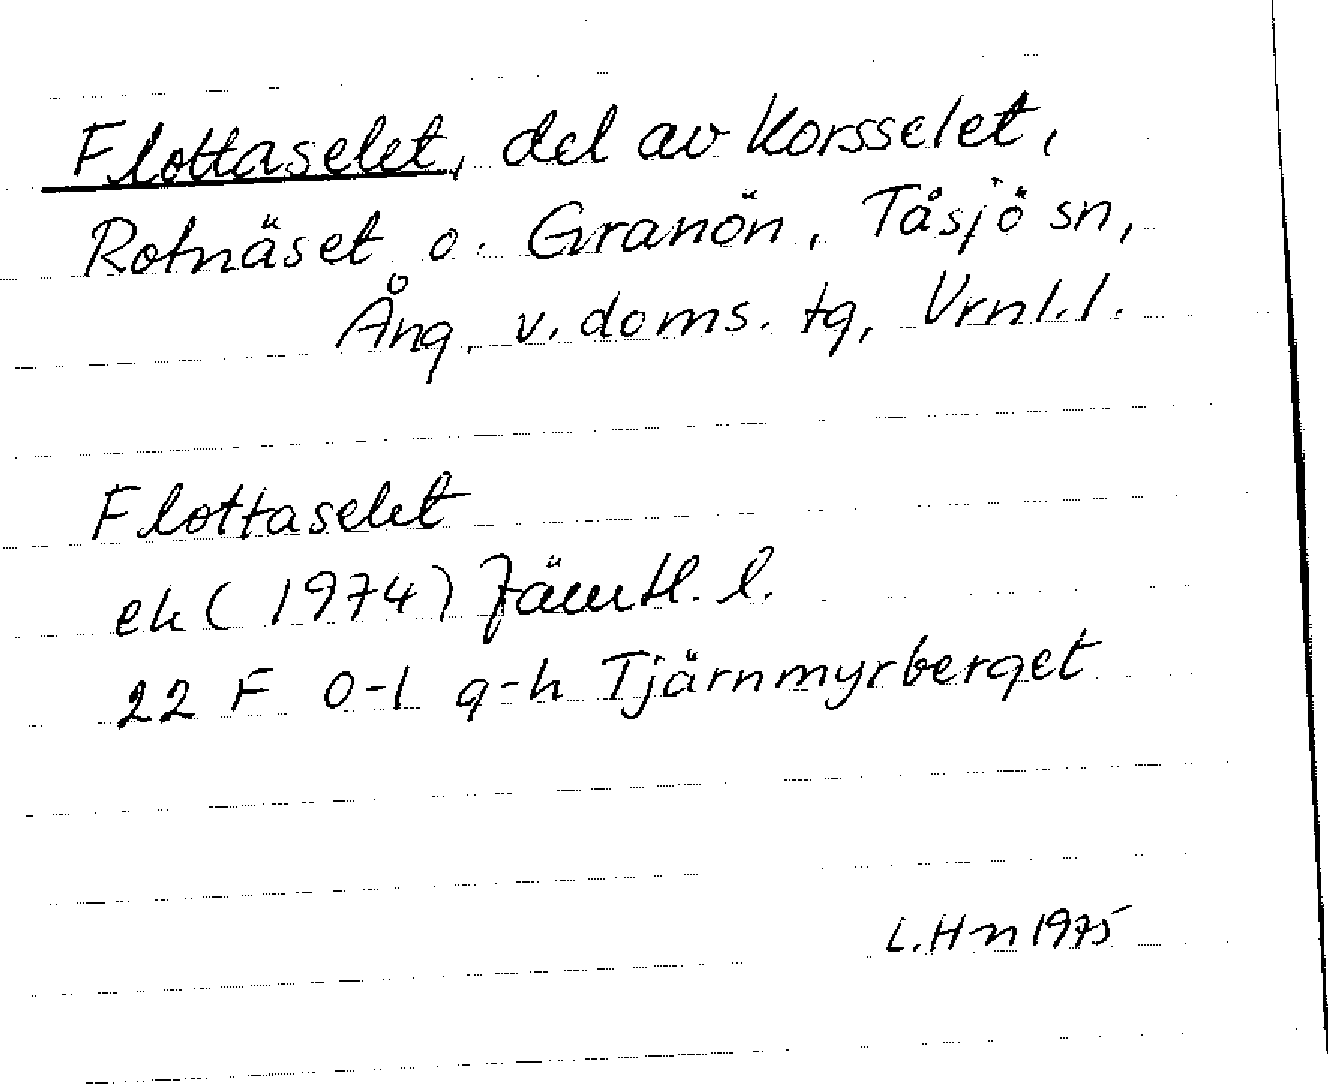 Flottaselet, del av Korsselet,
Rotnäset o. Granön, Tåsjö sn,
Ång. v. doms. tg, Vrnl.l.
Flottaselet
ek (1974) Jämtl. l.
22 F 0-1 g-h Tjärnmyrberget
L.Hn 1975